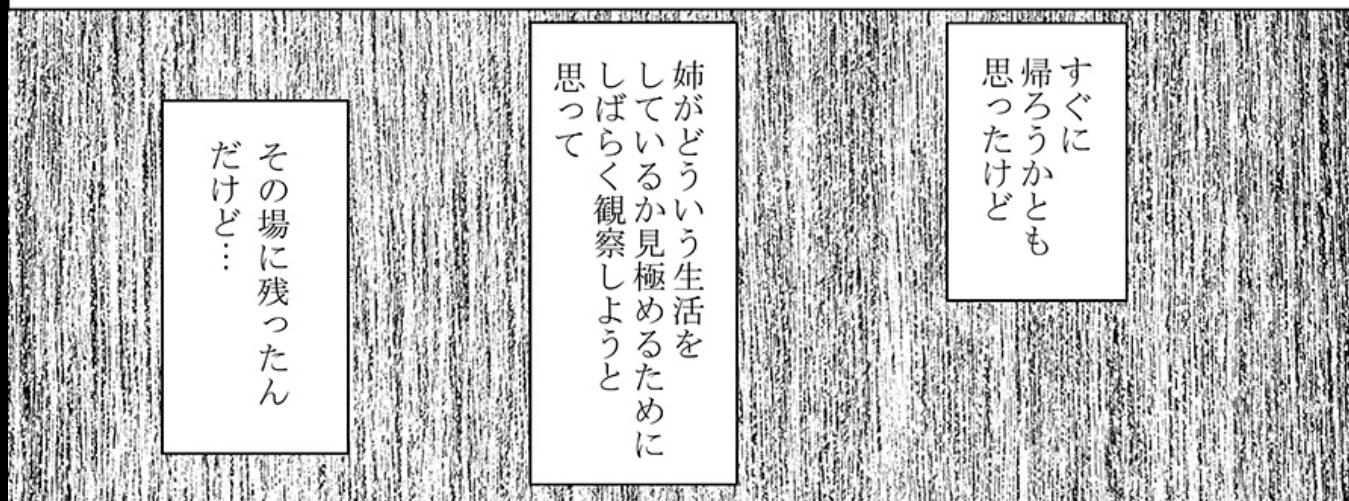 すぐに
帰ろうかとも
思ったけど
姉がどういう生活を
しているか見極めるために
しばらく観察しようと
思って
その場に残ったん
だけど…